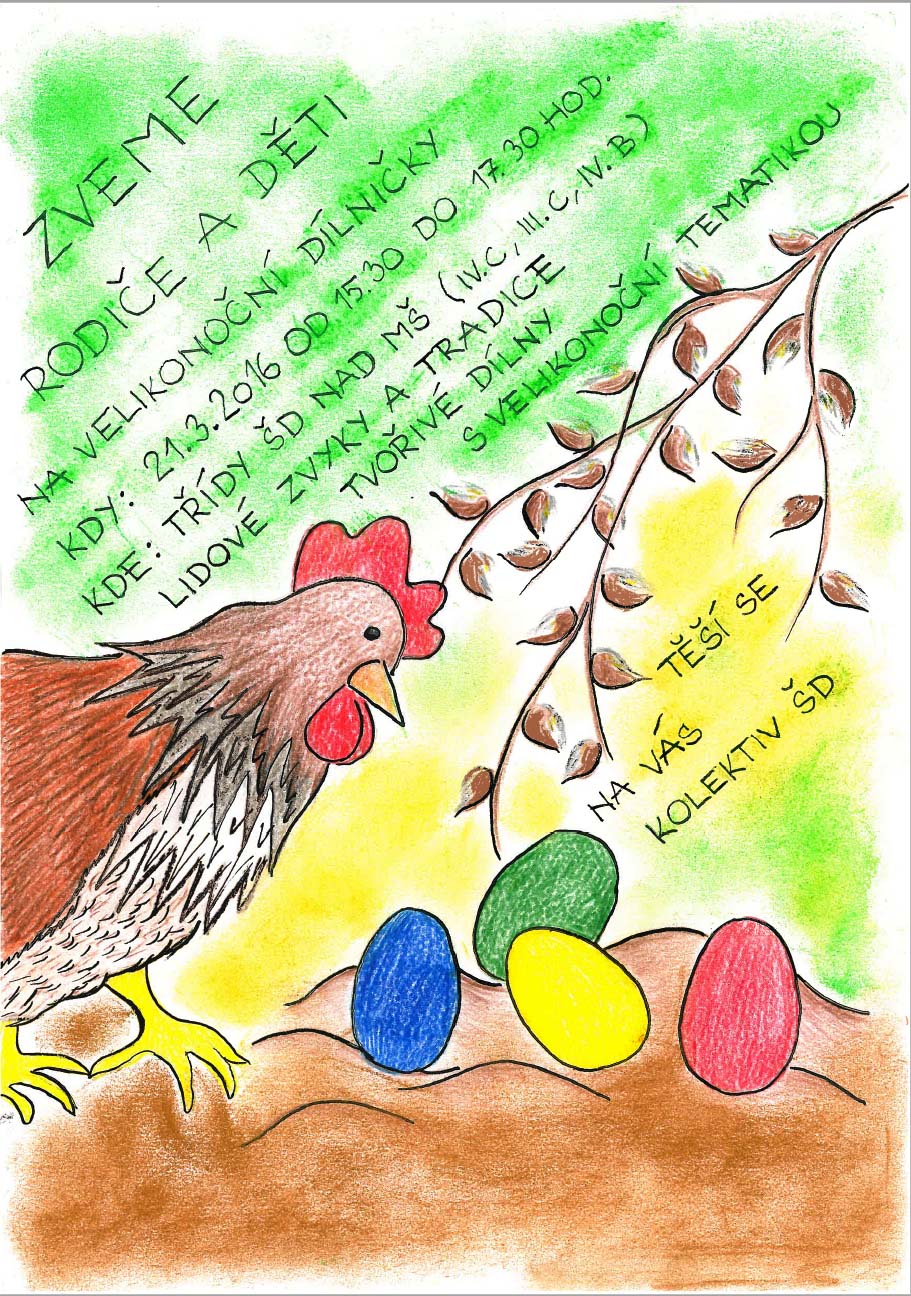 ZVEME
RODIČE A DĚTI
NA VELIKONOČNÍ DÍLNIČKY
KDY: 21.3.2016 OD 15.30 DO 17.30 HOD.
KDE: TŘÍDY ŠD NAD MŠ (IV.C, III.C, IV.B)
LIDOVÉ ZVYKY A TRADICE
TVOŘIVÉ DÍLNY
S VELIKONOČNÍ TEMATIKOU
NA VÁS TĚŠÍ SE
KOLEKTIV ŠD